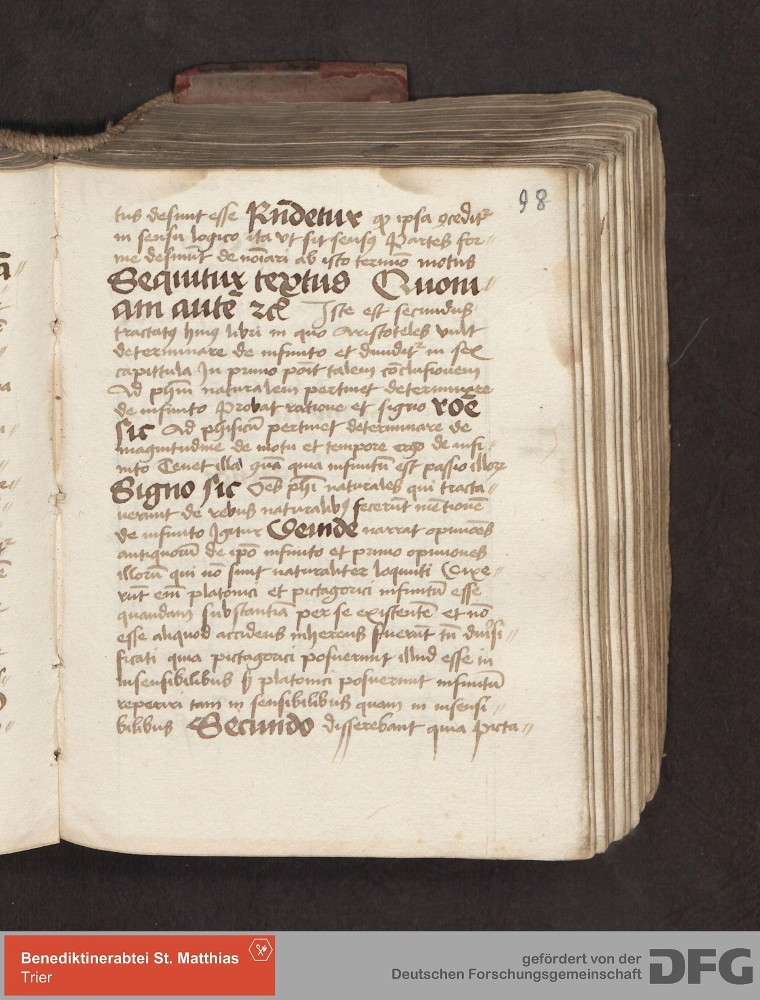 98
tus desunt esse Rñdetur ꝙ ipsa ꝯcedit᷑
in sensu logico ita vt sit sensꝰ Partes for〃
me desinūt denoīari ab isto termīo motus
Sequitur textus Quoni〃
am autē ⁊cͣ Iste est secundus
tractatꝰ huiꝰ libri in quo Aristoteles vult
determinare de infinito et diuidit᷑ in sex
capittula In primo poīt talem cōclusionem
Ad phm̄ naturalem pertinet determinare
de infinito Probat ratione et signo roē
sic Ad phisicū pertinet determinare de
magnitudine de motu et tempore ergo de infi〃
nito Tenet illa ꝯñā quia infinitū est passio illoꝝ
Signo sic Oēs phī naturales qui tracta〃
uerunt de rebus naturalibꝰ fecerūt mētionē
de infinito Igitur Deinde narrat opiniōes
antiquorū de ipō infinito et primo opiniones
illorū qui nō sunt naturaliter loquuti Dixe〃
rūt em̄ platonici et pictagorici infinitū esse
quandam substantiā per se existentē et nō
esse aliquod accidens inherens fuerūt tn̄ diuersi〃
ficati quia pictagorici posuerunt illud esse in
insensibilibus ꝫ platonici posuerunt infinitū
reperiri tam in sensibilibus quam in insensi〃
bilibus Secundo differebant quia picta〃
Benediktinerabtei St. Matthias
Trier
gefördert von der
Deutschen Forschungsgemeinschaft
DFG